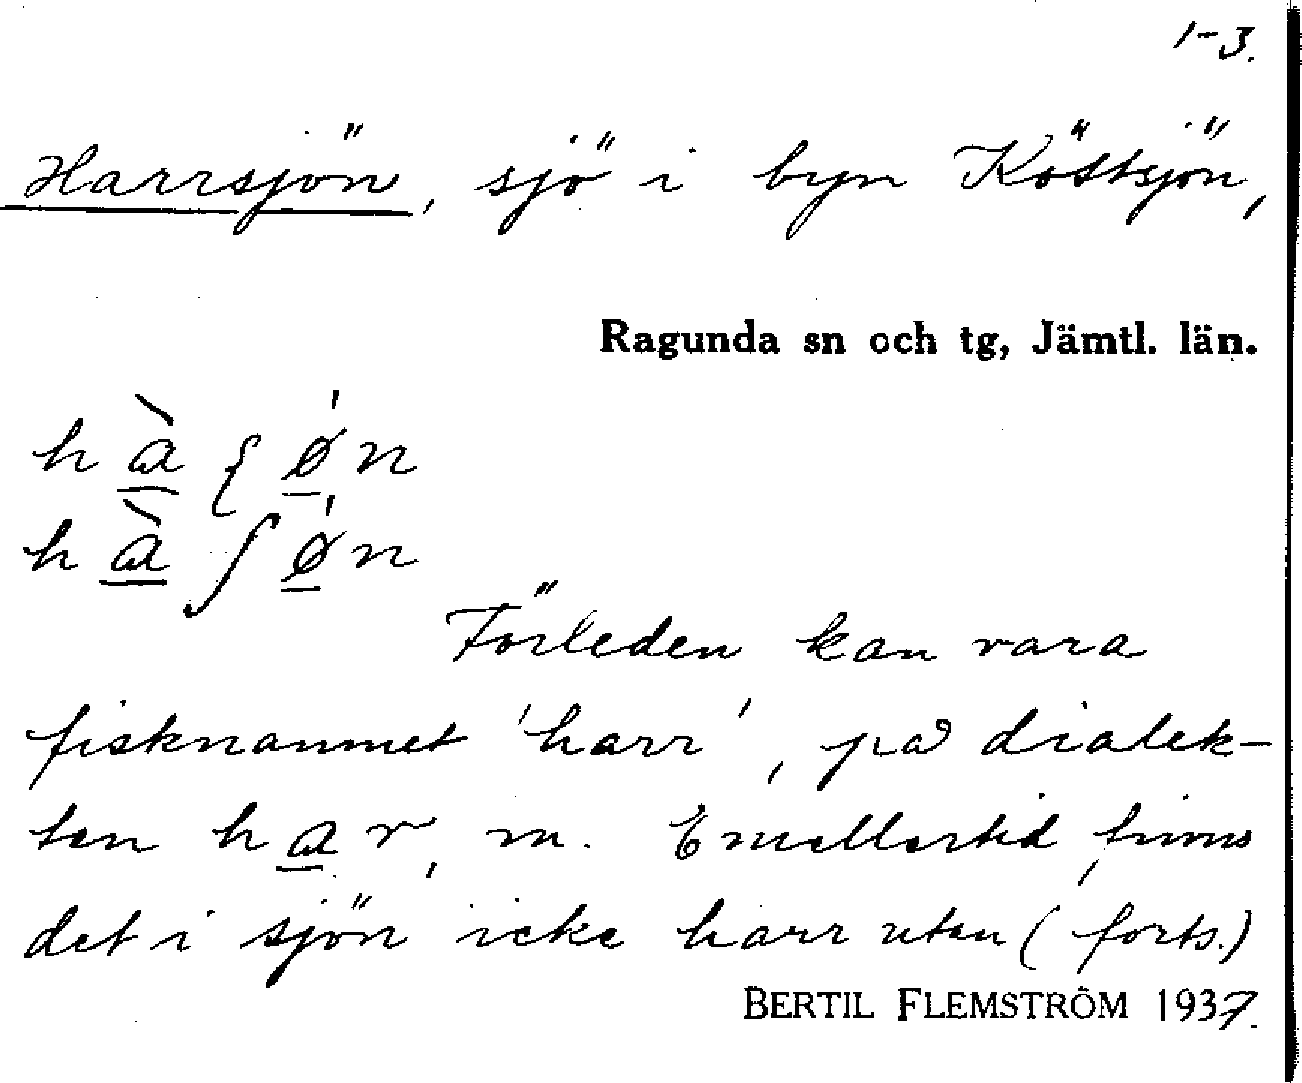 1-3.
Harrsjön, sjö i byn Köttsjön,
Ragunda sn och tg, Jämtl. län.
hà̱ ʃǿ̱n
Förleden kan vara
fisknamnet 'harr', på dialek-
ten ha̱r, m. Emellertid finns
det i sjön icke harr utan (forts.)
BERTIL FLEMSTRÖM 1937.